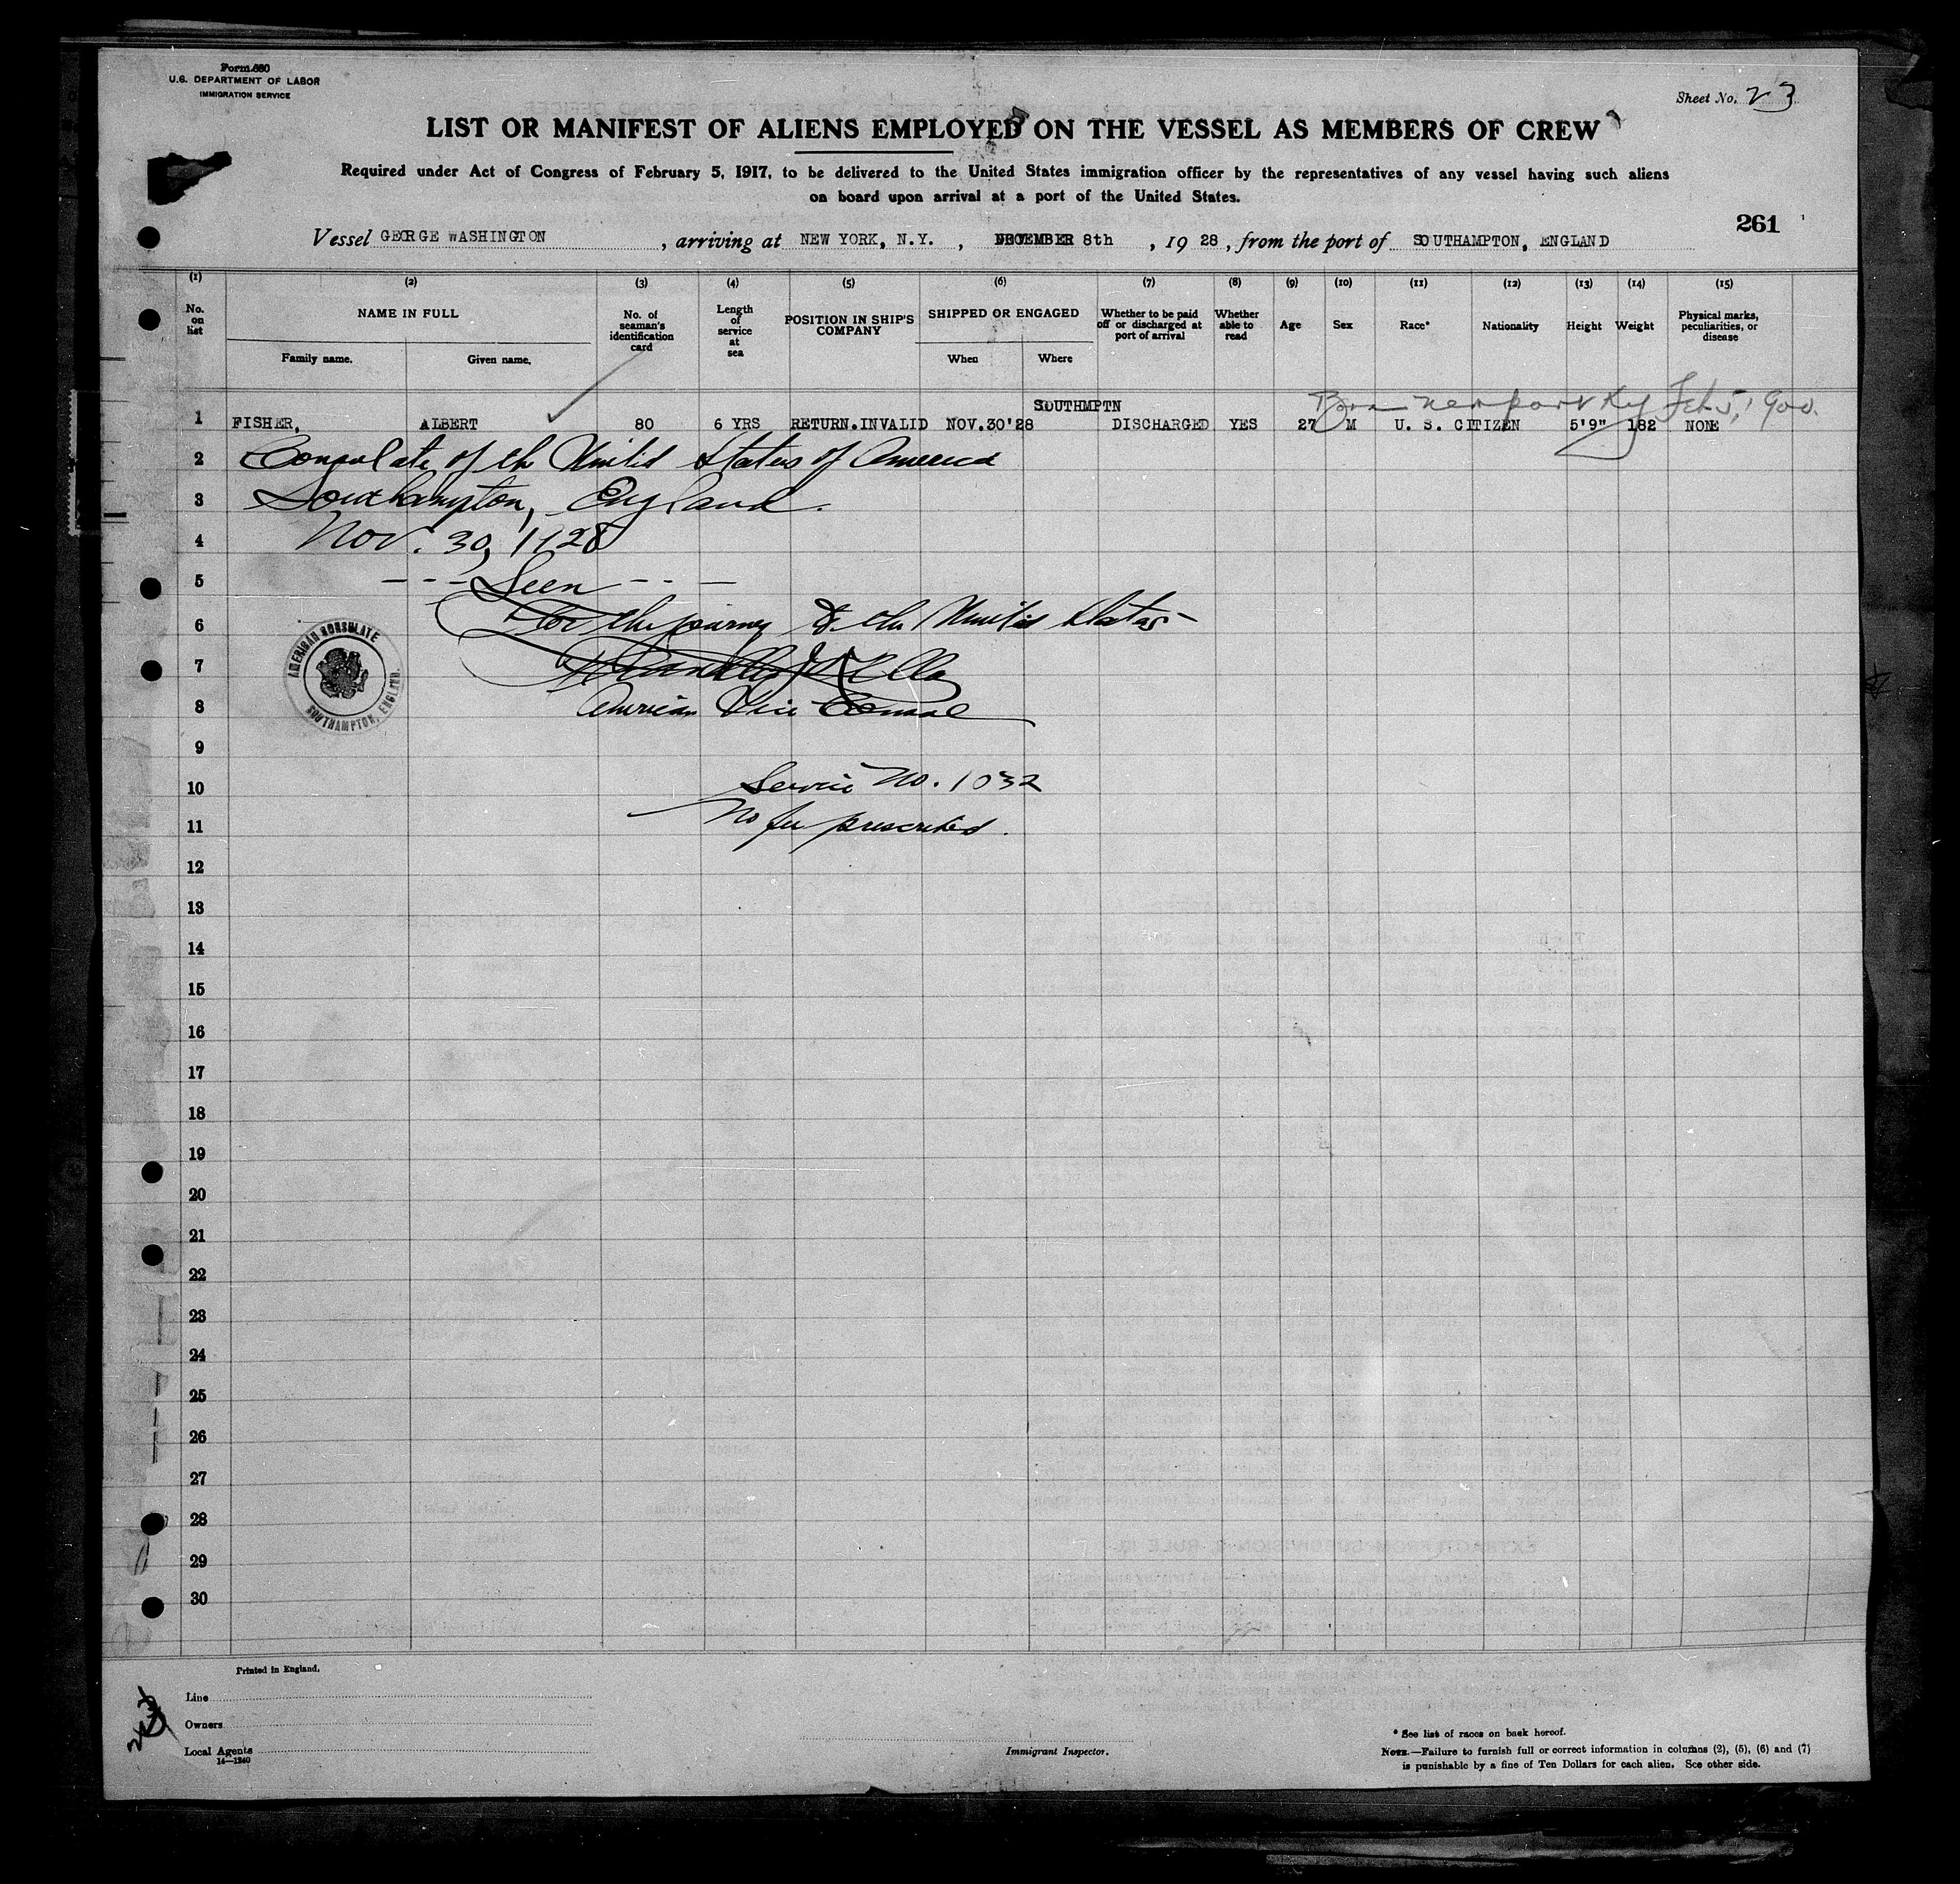 Form 680
U.S. DEPARTMENT OF LABOR
IMMIGRATION SERVICE
Sheet No. 23
LIST OR MANIFEST OF ALIENS EMPLOYED ON THE VESSEL AS MEMBERS OF CREW
Required under Act of Congress of February 5, 1917, to be delivered to the United States immigration officer by the representatives of any vessel having such aliens
on board upon arrival at a port of the United States.
261
Vessel GEORGE WASHINGTON, arriving at NEW YORK, N.Y., DECEMBER 8th, 1928, from the port of SOUTHAMPTON, ENGLAND
(1) (2) (3) (4) (5) (6) (7) (8) (9) (10) (11) (12) (13) (14) (15)
No. on list
NAME IN FULL
Family name. Given name.
No. of seaman's identification card
Length of service at sea
POSITION IN SHIP'S COMPANY
SHIPPED OR ENGAGED
When Where
Whether to be paid off or discharged at port of arrival
Whether able to read
Age
Sex
Race*
Nationality
Height
Weight
Physical marks, peculiarities, or disease
Born Newport Ky Feb 5, 1900.
SOUTHMPTN
1 FISHER, ALBERT 80 6 YRS RETURN.INVALID NOV.30'28 DISCHARGED YES 27 M U. S. CITIZEN 5'9" 182 NONE
2 Consulate of the United States of America
3 Southampton, England.
4 Nov. 30, 1928
5 - - - Seen - - -
6 For the journey to the United States
7
8 American Vice Consul
AMERICAN CONSULATE
SOUTHAMPTON, ENGLAND.
9
10 Service No. 1032
11 No fee prescribed.
12
13
14
15
16
17
18
19
20
21
22
23
24
25
26
27
28
29
30
Printed in England.
Line
Owners
Local Agents
14—1240
Immigrant Inspector.
* See list of races on back hereof.
NOTE.—Failure to furnish full or correct information in columns (2), (5), (6) and (7)
is punishable by a fine of Ten Dollars for each alien. See other side.